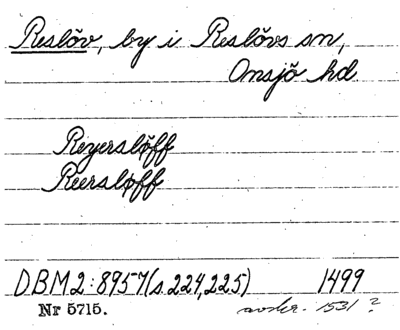 Reslöv, by i Reslövs sn,
Onsjö hd
Reyerslöff
Reerslöff
DBM2:8957(s.224,225) 1499
Nr 5715. avskr. 1531 ?